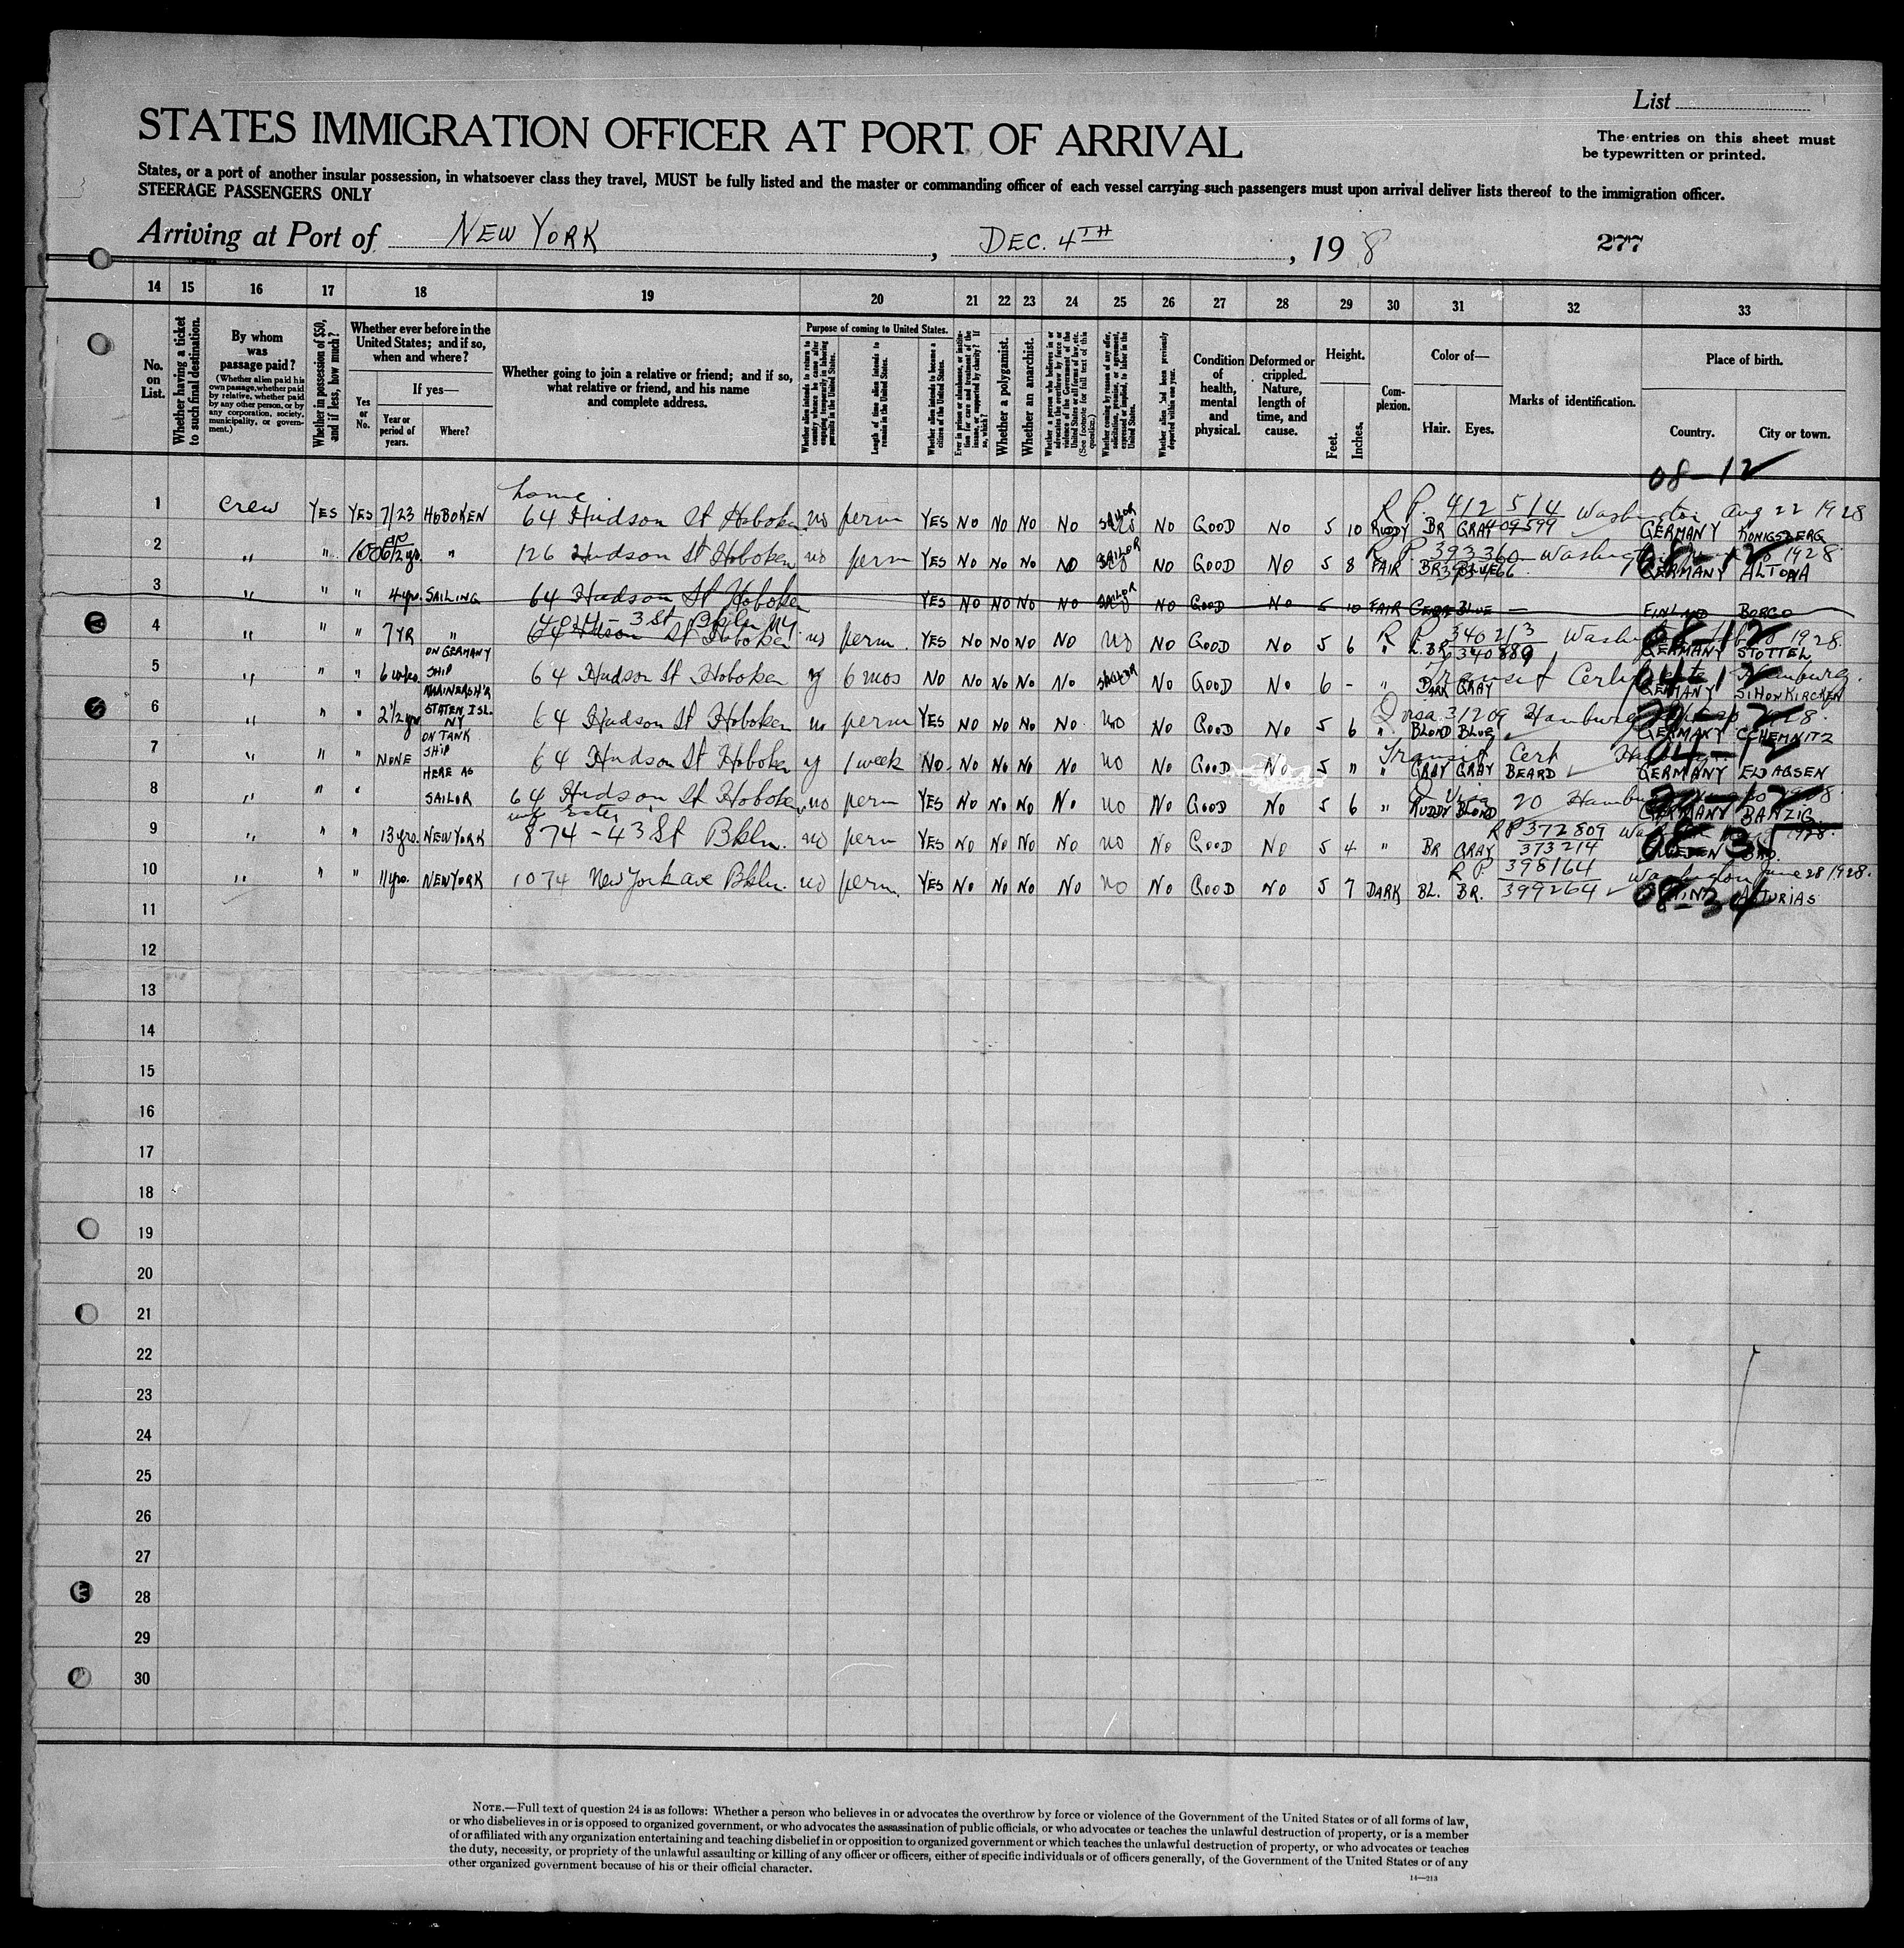 List
STATES IMMIGRATION OFFICER AT PORT OF ARRIVAL
The entries on this sheet must be typewritten or printed.
States, or a port of another insular possession, in whatsoever class they travel, MUST be fully listed and the master or commanding officer of each vessel carrying such passengers must upon arrival deliver lists thereof to the immigration officer.
STEERAGE PASSENGERS ONLY
Arriving at Port of NEW YORK, DEC. 4TH, 19 8 277
14 15 16 17 18 19 20 21 22 23 24 25 26 27 28 29 30 31 32 33
No. on List.
Whether having a ticket to such final destination.
By whom was passage paid?
(Whether alien paid his own passage, whether paid by relative, whether paid by any other person, or by any corporation, society, municipality, or government.)
Whether in possession of $50, and if less, how much?
Whether ever before in the United States; and if so, when and where?
If yes—
Yes or No.
Year or period of years.
Where?
Whether going to join a relative or friend; and if so, what relative or friend, and his name and complete address.
Purpose of coming to United States.
Whether alien intends to return to country whence he came after engaging temporarily in laboring pursuits in the United States.
Length of time alien intends to remain in the United States.
Whether alien intends to become a citizen of the United States.
Ever in prison or almshouse, or institution for care and treatment of the insane, or supported by charity? If so, which?
Whether a polygamist.
Whether an anarchist.
Whether a person who believes in or advocates the overthrow by force or violence of the Government of the United States or all forms of law, etc. (See footnote for full text of this question.)
Whether coming by reason of any offer, solicitation, promise, or agreement, expressed or implied, to labor in the United States.
Whether alien had been previously deported within one year.
Condition of health, mental and physical.
Deformed or crippled. Nature, length of time, and cause.
Height.
Feet. Inches.
Complexion.
Color of—
Hair. Eyes.
Marks of identification.
Place of birth.
Country. City or town.
08-12
home
R P. 412514 Washington Aug 22 1928
1 crew YES YES 7/23 HOBOKEN 64 Hudson St Hoboken no perm YES NO NO NO NO SAILOR NO GOOD NO 5 10 RUDDY BR GRAY 409599 GERMANY KONIGSBERG
R P 393360 Washington 1928
2 " " 6 1/2 yr. " 126 Hudson St Hoboken no perm YES NO NO NO NO SAILOR NO GOOD NO 5 8 FAIR BR BLUE GERMANY ALTONA
3 " " " 4 yrs. SAILING 64 Hudson St Hoboken YES NO NO NO NO SAILOR NO GOOD NO 5 10 FAIR BLUE — FINLAND BORGO
3 St Bkln NY
R P 340213 Washington 1928.
4 " " " 7 YR " 64 Hudson St Hoboken no perm. YES NO NO NO NO no NO GOOD NO 5 6 " L.BR 340889 GERMANY STOTTEL
ON GERMANY SHIP
Transit Certificate Hamburg.
5 " " " 6 wks. 64 Hudson St Hoboken y 6 mos NO NO NO NO NO SAILOR NO GOOD NO 6 - " DARK GRAY GERMANY SIMONKIRCHEN
STATEN ISL. NY
Q visa 31209 Hamburg 1928.
6 " " " 2 1/2 yr 64 Hudson St Hoboken no perm YES NO NO NO NO no NO GOOD NO 5 6 " BLOND BLUE GERMANY CHEMNITZ
ON TANK SHIP
Transit Cert
7 " " " NONE 64 Hudson St Hoboken y 1 week NO. NO NO NO NO no NO GOOD NO 5 " " GRAY GRAY BEARD GERMANY ELDAGSEN
HERE AS SAILOR
20 Hamburg 1928.
8 " " " 64 Hudson St Hoboken no perm YES NO NO NO NO no NO GOOD NO 5 6 " RUDDY BLOND GERMANY DANZIG
wife Ester
R P 372809 1928.
9 " " " 13 yrs. NEW YORK 874 - 43 St Bkln. no perm YES NO NO NO NO no NO GOOD NO 5 4 " BR GRAY 373214 SWEDEN
R P 398164 Washington June 28 1928.
10 " " " 11 yrs. NEW YORK 1074 New York ave Bkln. no perm. YES NO NO NO NO no NO GOOD NO 5 7 DARK BL. BR. 399264 SPAIN ASTURIAS
11
12
13
14
15
16
17
18
19
20
21
22
23
24
25
26
27
28
29
30
NOTE.—Full text of question 24 is as follows: Whether a person who believes in or advocates the overthrow by force or violence of the Government of the United States or of all forms of law,
or who disbelieves in or is opposed to organized government, or who advocates the assassination of public officials, or who advocates or teaches the unlawful destruction of property, or is a member
of or affiliated with any organization entertaining and teaching disbelief in or opposition to organized government or which teaches the unlawful destruction of property, or who advocates or teaches
the duty, necessity, or propriety of the unlawful assaulting or killing of any officer or officers, either of specific individuals or of officers generally, of the Government of the United States or of any
other organized government because of his or their official character.
14—213